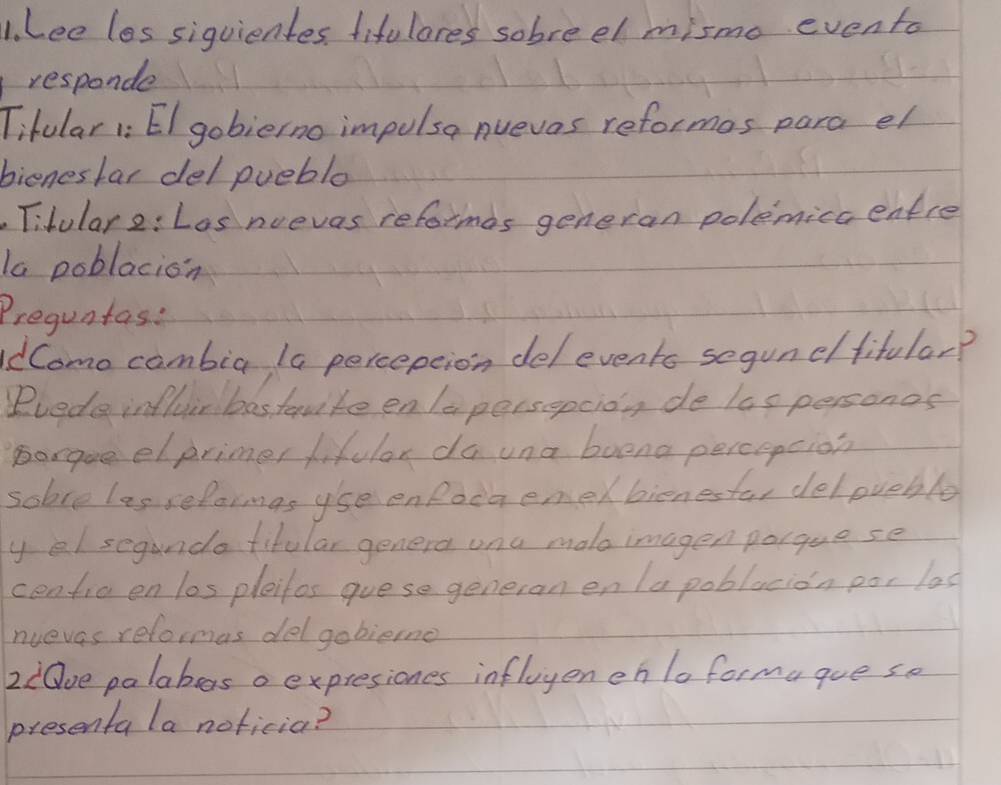 1. Lee los siguientes titulares sobre el mismo evento
y responde
Titular 1: El gobierno impulsa nuevas reformas para el
bienestar del pueblo
. Titular 2: Las nuevas reformas generan polémica entre
la población
Preguntas:
1¿Como cambia, la percepción del evento segun el titular?
Puede influir bastante en la persepción de las personas
porque el primer titular da una buena percepción
sobre las reformas y se enfoca en el bienestar del pueblo
y el segundo titular genera una mala imagen porque se
centra en los pleitos que se generan en la población por las
nuevas reformas del gobierno
2¿Que palabras o expresiones influyen en la forma que se
presenta la noticia?